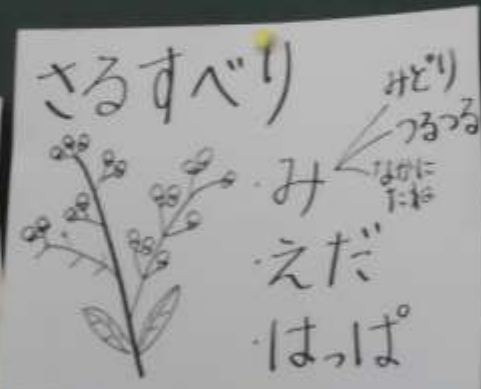 さるすべり
みどり
つるつる
・み
なかに
たね
・えだ
・はっぱ